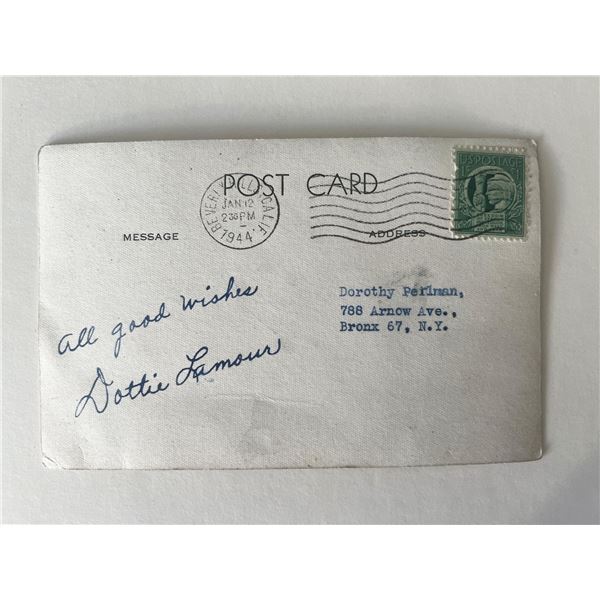 POST CARD
BEVERLY HILLS CALIF.
JAN 12
2 30 PM
1944
U.S. POSTAGE
MESSAGE
ADDRESS
All good wishes
Dottie Lamour
Dorothy Perlman,
788 Arnow Ave.,
Bronx 67, N.Y.